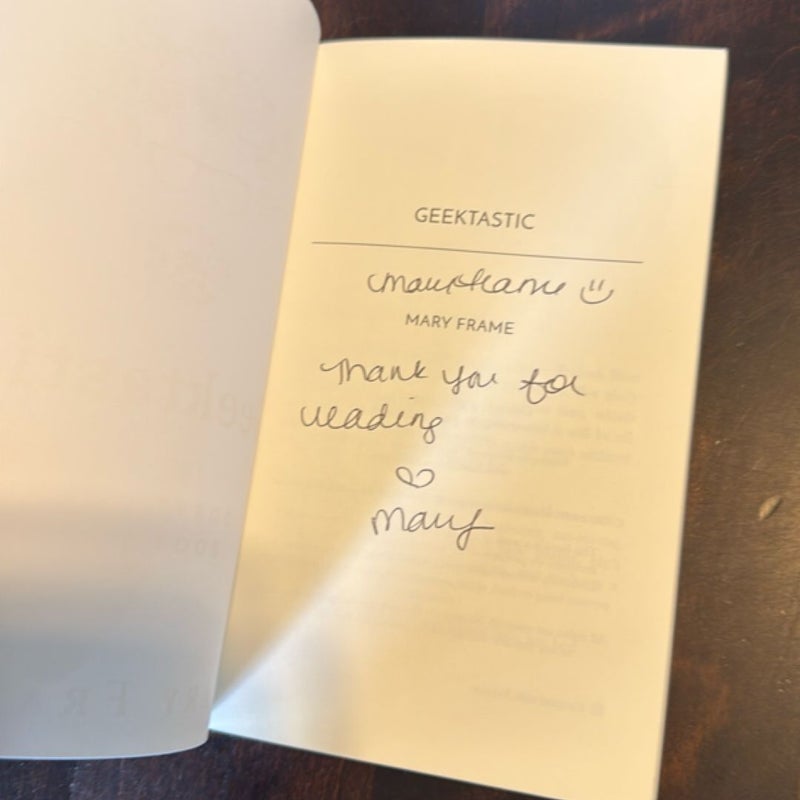 GEEKTASTIC
Mary Frame
MARY FRAME
Thank you for
reading
Mary